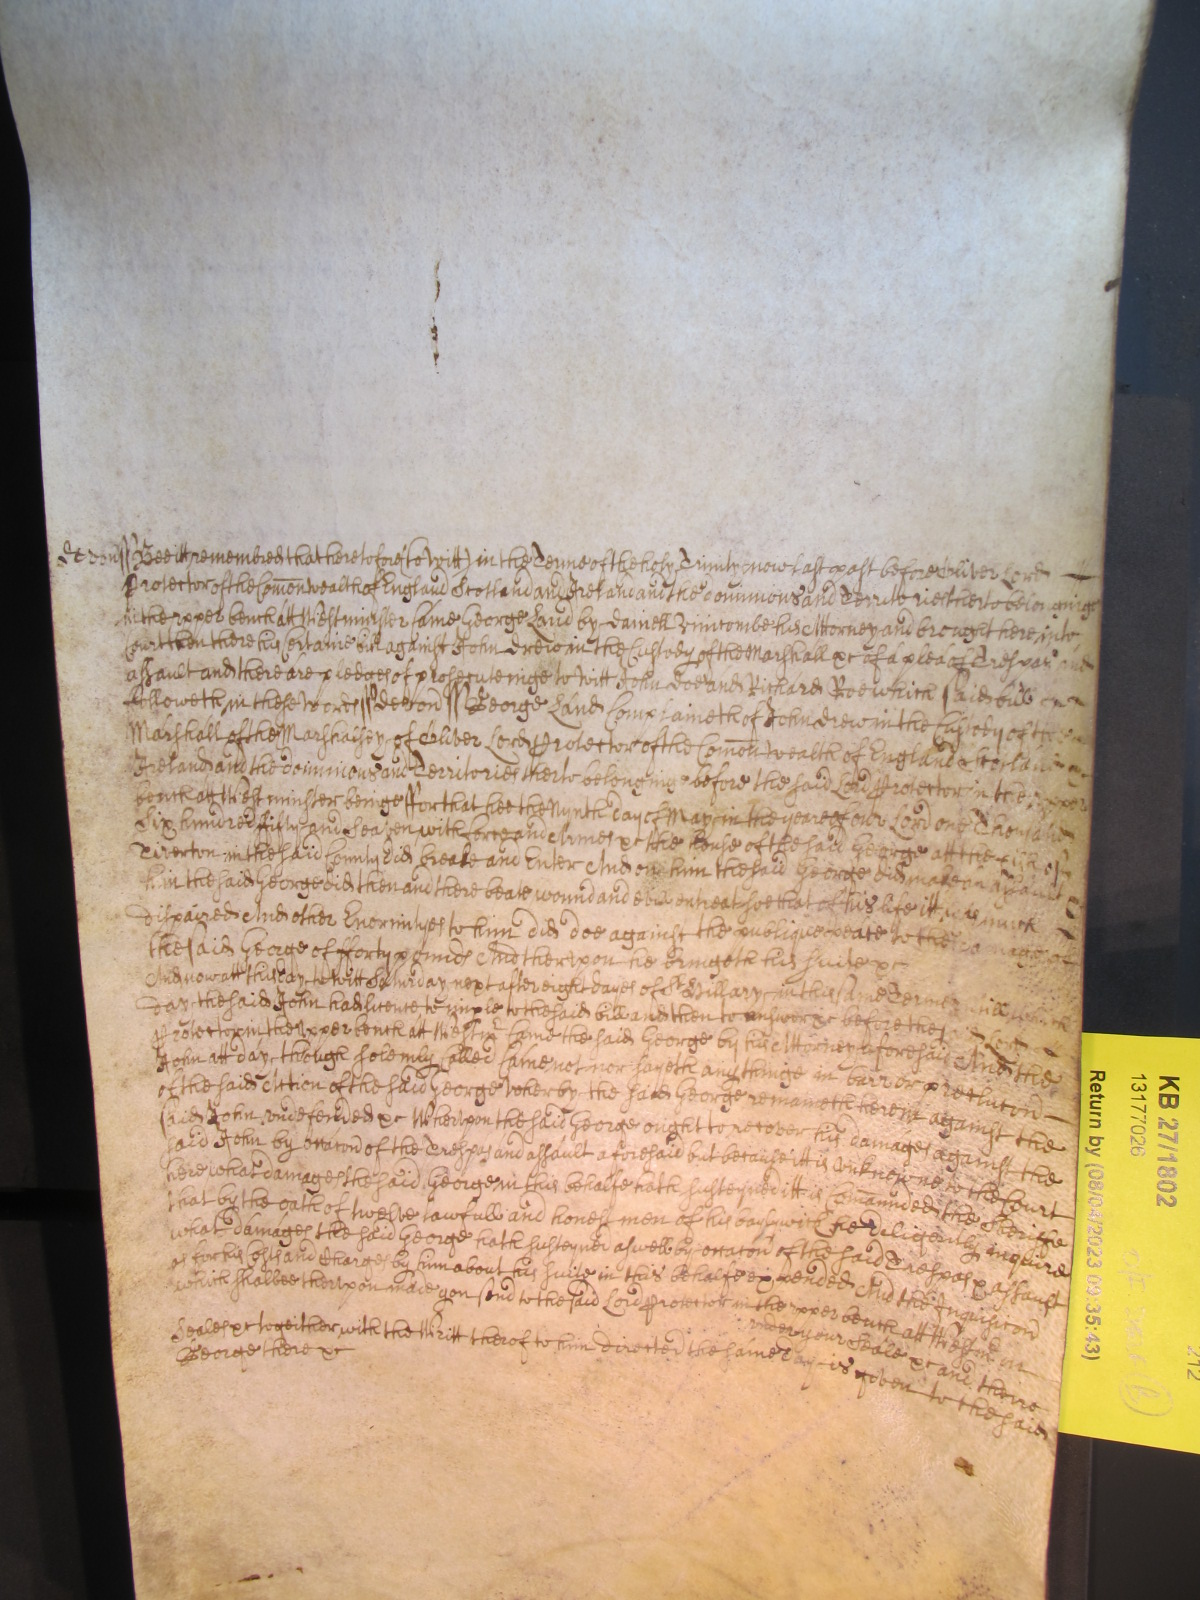 Devon ss Bee itt remembred that heretofore (to Witt) in the Terme of the holy Trinity now last past before Oliver Lord
Protector of the Comonwealth of England Scotland and Ireland and the dominions and Territories therto belonginge
in the upper bench att Westminster Came George Land by Daniell his Attorney and brought here into
Court then there his Certaine bill against John Drew in the Custody of the Marshall &c of a plea of Trespas and
assault and there are pledges of prosecuteinge to Witt John Doe and Richard Roe which said bill
followeth in these words ss Devon ss George Land Complaineth of John Drew in the Custody of the
Marshall of the Marshalsey of Oliver Lord Protector of the Comon wealth of England Scotland
Ireland and the dominions and Territories therto belonginge before the said Lord Protector in the upper
bench att Westminster beinge ffor that hee the Nynth day of May in the yeare of our Lord one Thousand
Six hundred fifty and Seaven with force and Armes &c the house of the said George att
Tiverton in the said County did breake and Enter And on him the said George did make an assault
him the said George did then and there beate wound and evily entreat soe that of his life itt was much
dispaired And other Enormityes to him did doe against the publique peace to the damage of
the said George of fforty pounds And therupon he bringeth his suite &c
And now att this day to Witt Saturday next after eight dayes of St Hillary in this same Terme untill which
day the said John had licence to imple to the said bill and then to answer &c before the Lord
Protector in the Upper bench att Westmr Came the said George by his Attorney aforesaid And the
John att day though solemly Called Came not nor sayeth any thinge in barr or preclucon
of the said Action of the said George wherby the said George remaineth therein against the
said John undefended &c Wherupon the said George ought to recover his damages against the
said John by occacon of the Trespas and assault aforesaid but because itt is unknowne to the Court
here what damages the said George in this behalfe hath susteyned itt is Comaunded the Sheriffe
that by the oath of twelve lawfull and honest men of his baylywick he diligently inquire
what damages the said George hath susteyned aswell by occacon of the said Trespas & assault
as for his Costs and Charges by him about his suite in this behalfe expended And the Inquisicon
which shalbee therupon made you send to the said Lord Protector in the upper bench att Westmr on
under your Seale &c and theire
Seales &c togeither with the Writt therof to him directed the same day is given to the said
George there &c
KB 27/1802
13177026
Return by (08/04/2023 09:35:43)
212